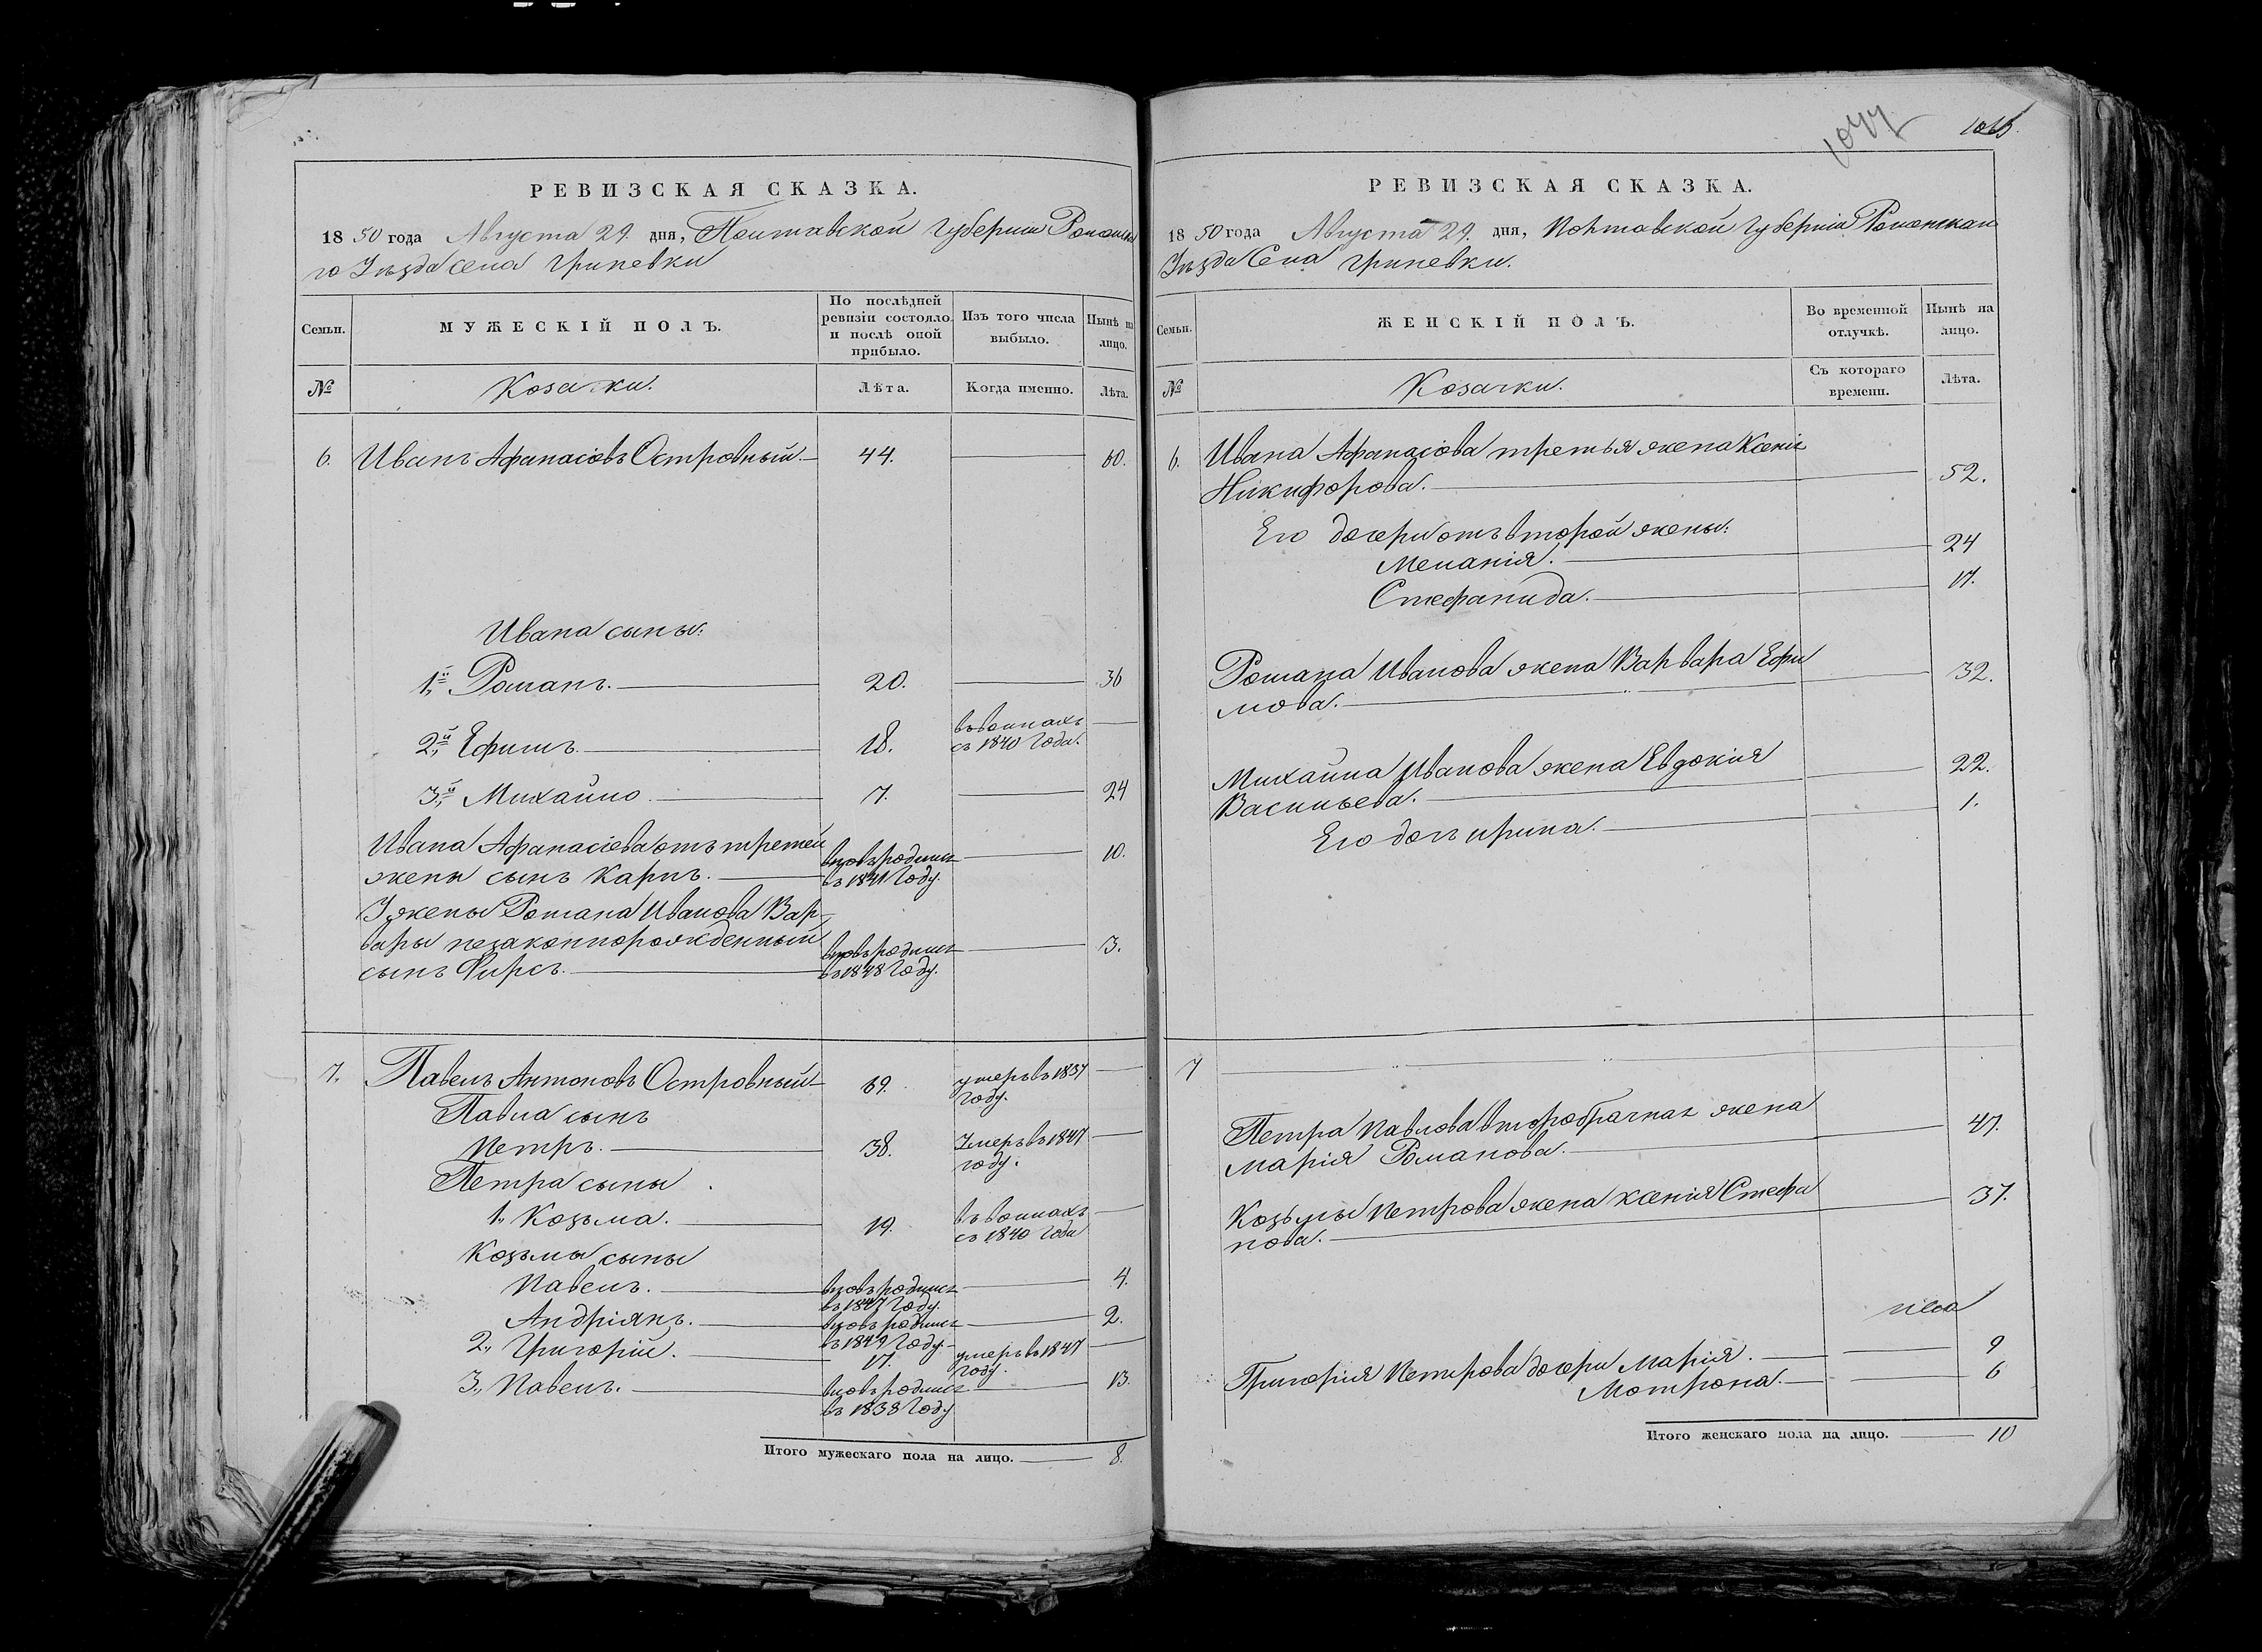 РЕВИЗСКАЯ СКАЗКА.
1850 года Августа 29. дня, Полтавской Губернии Роменска
го Уѣзда Села Гриневки
Семьи. МУЖЕСКІЙ ПОЛЪ. По послѣдней ревизіи состояло и послѣ оной прибыло. Изъ того числа выбыло. Нынѣ на лицо.
№ Козачки. Лѣта. Когда именно. Лѣта.
6. Иванъ Афанасіовъ Островный. 44. 60.
Ивана сыны:
1й Романъ. 20. 36
2й Ефимъ. 18. въ воинахъ
съ 1840 года.
3й Михайло. 7. 24
Ивана Афанасіева отъ третей
жены сынъ Карпъ. вновь родился
въ 1841 Году. 10.
У жены Романа Иванова Вар-
вары незаконнорожденный
сынъ Фирсъ. вновь родился
въ 1848 Году. 3.
7. Павелъ Антоновъ Островный 69. умеръ въ 1837
году.
Павла сынъ
Петръ. 38. Умеръ въ 1847
году.
Петра сыны
1. Козьма. 19. въ воинахъ
съ 1840 года
Козьмы сыны
Павелъ. вновь родился
въ 1847 Году. 4.
Андріянъ. вновь родился
въ 1849 Году. 2.
2. Григорій. 17. умеръ въ 1847
году.
3. Павелъ. вновь родился
въ 1838 Году 13.
Итого мужескаго пола на лицо. 8.
1077
РЕВИЗСКАЯ СКАЗКА.
1850 года Августа 29. дня, Полтавской Губерніи Роменскаго
Уѣзда Села Гриневки.
Семьи. ЖЕНСКІЙ ПОЛЪ. Во временной отлучкѣ. Нынѣ на лицо.
№ Козачки. Съ котораго времени. Лѣта.
6. Ивана Афанасіова третья жена Ксенія
Никифорова. 52.
Его дочери отъ второй жены:
Меланія. 24
Стефанида. 17.
Романа Иванова жена Варвара Ефи
мова. 32.
Михайла Иванова жена Евдокия
Васильева. 22.
Его дочь Ирина. 1.
7
Петра Павлова второбрачная жена
Марія Романова. 47.
Козьмы Петрова жена Ксенія Стефа
нова. 37.
Григорія Петрова дочери Марія. 9
Мотрона. 6
Итого женскаго пола на лицо. 10